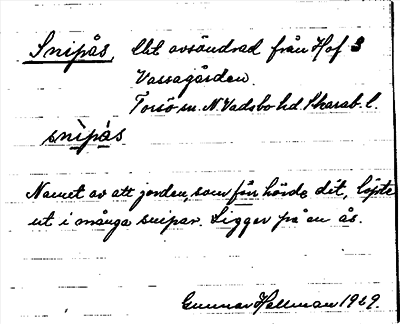 Snipås, Utt avsöndrad från Hof 3
Vassagården.
Torsö sn. N. Vadsbo hd Skarab. l.
snìpås
Namnet av att jorden, som förr hörde dit, löpte
ut i många snipar. Ligger på en ås.
Gunnar Hallman 1929.